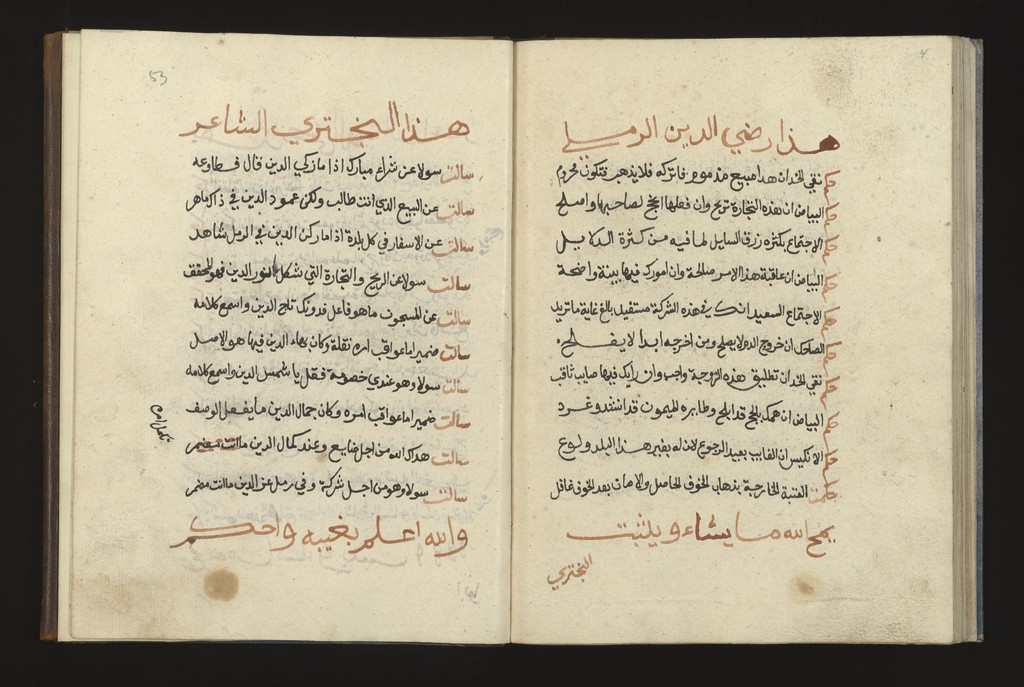 4
هذا رضي الدين الرملي
حكم نقي الخد ان هذا مبيع مذموم فاتركه فلا يذهب فتكون محروم
حكم البياض ان هذه التجارة تربح وان فعلها انجح لصاحبها واصلح
حكم الاجتماع بكثرة رزق السايل لما فيه من كثرة الدلايل
حكم البياض ان عاقبة هذا الامر صالحة وان امورك فيها بينة واضحة
حكم الاجتماع السعيد انك في هذه الشركة مستفيد بالغ غاية ما تريد
حكم الضاحك ان خروج الدم لا يصلح ومن اخرجه ابدا لا يفلح
حكم نقي الخد ان تطليق هذه الزوجة واجب وان رايك فيها صايب ثاقب
حكم البياض ان همك بلج قد ابلج وطايره الميمون قد انشد وغرد
حكم الانكيس ان الغايب بعيد الرجوع لان له بغير هذا البلد ولوع
حكمت العتبة الخارجة بذهاب الخوف الحاصل والامان بعد الخوف غافل
يمح الله ما يشاء ويثبت
البختري
53
هذا البختري الشاعر
سالت سولا عن شراء مبارك اذا ما زكي الدين قال فطاوعه
سالت عن البيع الذي انت طالب ولكن عمود الدين في ذاك ماهر
سالت عن الاسفار في كل بلدة اذا ما ركن الدين في الرمل شاهد
سالت سولا عن الربح والتجارة التي شكل النور الدين فهو المحقق
سالت عن المسجون ما هو فاعل فدونك تاج الدين واسمع كلامه
سالت ضمير اما عواقب امره نقلة وكان بهاء الدين فيها هو الاصل
سالت سولا وهو عندي خصومة فقل يا شمس الدين واسمع كلامه
سالت ضمير اما عواقب امره وكان جمال الدين ما يفعل الوصف
سالت هداك الله من اجل ضايع وعند كمال الدين ما انت مضمر
سالت سولا وهو من اجل شركة وفي رمل عز الدين ما انت مضمر
والله اعلم بغيبه واحكم